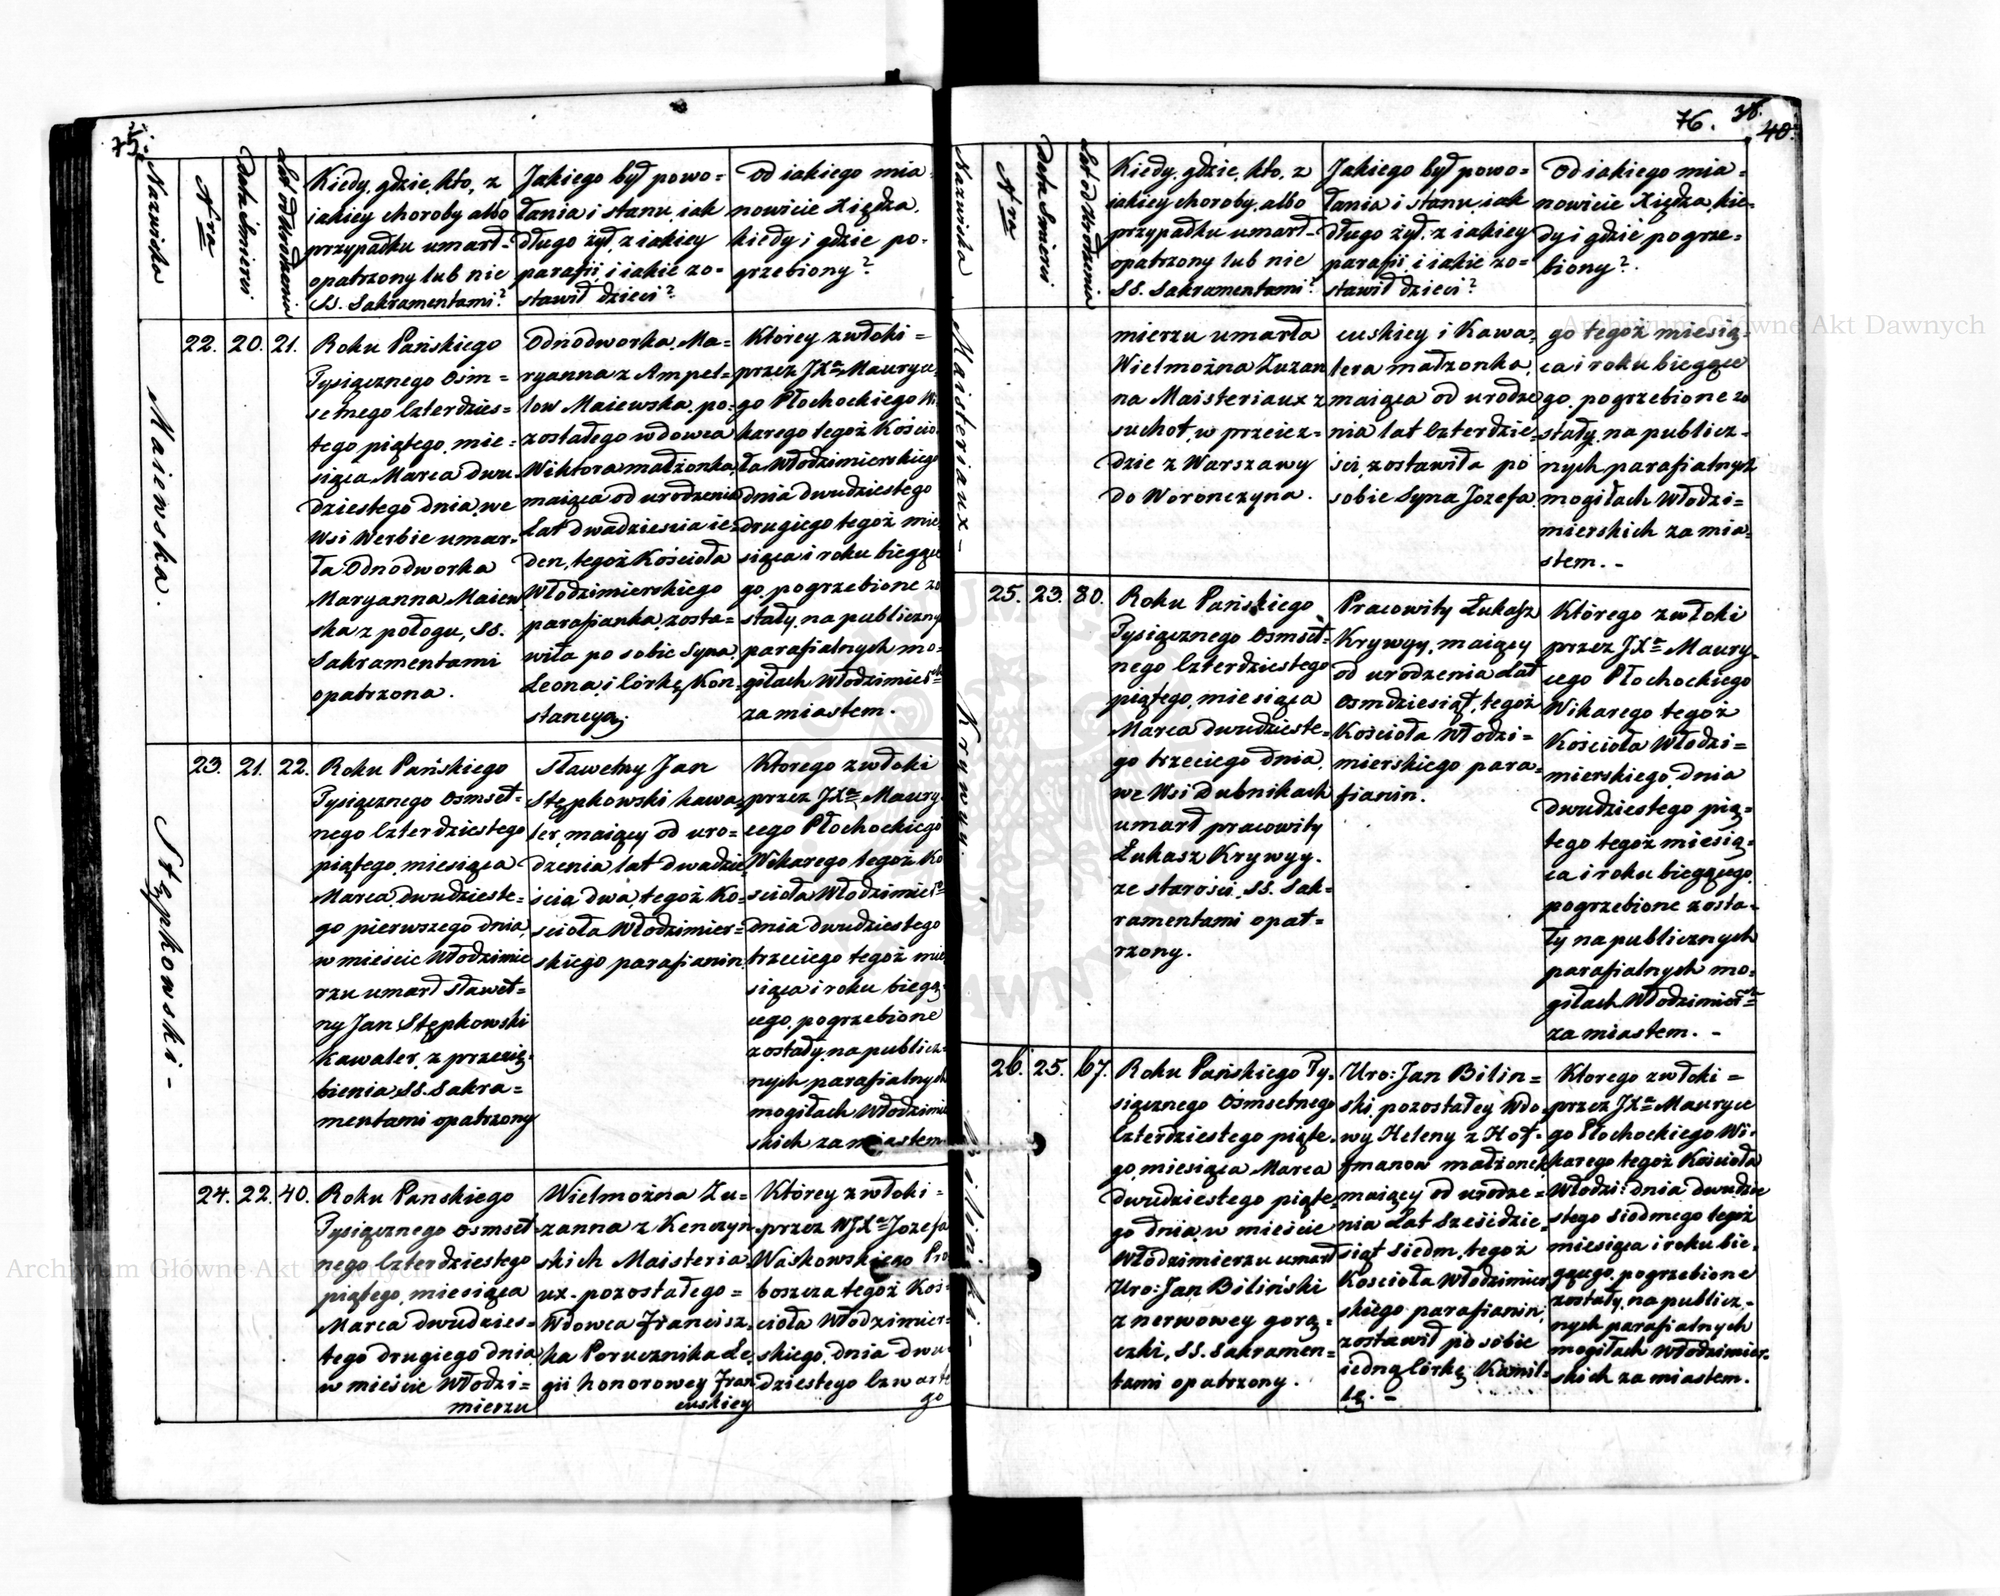 75.
Nazwisko
Nra
Data Śmierci
Lat od Urodzenia
Kiedy, gdzie, kto, z
iakiey choroby albo
przypadku umarł-
opatrzony lub nie
SS. Sakramentami?
Jakiego był powo=
łania i stanu, iak
długo żył, z iakiey
parafii, i iakie zo=
stawił dzieci?
Od iakiego mia=
nowicie Xiędza,
kiedy i gdzie po-
grzebiony?
Maiewska.
22.
20.
21.
Roku Pańskiego
Tysiącznego Ośm=
setnego Czterdzies=
tego piątego, mie=
siąca Marca dwu
dziestego dnia, we
Wsi Werbie umar=
ła Odnodworka
Maryanna Maiew
ska z połogu, SS.
Sakramentami
opatrzona.
Odnodworka, Ma=
ryanna z Ampel=
low Maiewska, po=
zostałego wdowca
Wiktora małżonka,
maiąca od urodzenia
Lat dwadzieścia ie=
den, tegoż Kościoła
Włodzimierskiego
parafianka, zosta=
wiła po sobie Syna
Leona, i Córkę Kon=
stancyą.
Którey zwłoki=
przez JXa Maurycu
go Płochockiego Wi
karego tegoż Kościo
ła Włodzimierskiego
dnia dwudziestego
drugiego tegoż mie
siąca i roku bieżące
go, pogrzebione zo
stały, na publiczny
parafialnych mo=
giłach Włodzimiersk
za miastem.
Stępkowski-
23.
21.
22.
Roku Pańskiego
Tysiącznego Osmset=
nego Czterdziestego
piątego, miesiąca
Marca, dwudzieste=
go pierwszego dnia,
w mieście Włodzimie
rzu umarł sławet=
ny Jan Stępkowski
kawaler, z przezię=
bienia, SS. Sakra=
mentami opatrzony
Sławetny Jan
Stępkowski kawa=
ler, maiący od uro=
dzenia lat dwadzie
ścia dwa, tegoż Ko=
ścioła Włodzimier=
skiego parafianin.
Którego zwłoki
przez JXa Maury
cego Płochockiego
Wikarego tegoż Ko
ścioła Włodzimiersk
dnia dwudziestego
trzeciego tegoż mie
siąca i roku bieżą=
cego, pogrzebione
zostały, na publicz=
nych parafialnych
mogiłach Włodzimie
skich za miastem
24.
22.
40.
Roku Panskiego
Tysiącznego Osmset
nego Czterdziestego
piątego, miesiąca
Marca dwudzies=
tego drugiego dnia
w mieście Włodzi=
mierzu
Wielmożna Zu=
zanna z Kenczyn
skich Maisteria
ux- pozostałego=
Wdowca Francisz=
ka Porucznika Le=
gii honorowey Fran
cuskiey
Którey zwłoki=
przez WJXa Jozefa
Waśkowskiego Pro
boszcza tegoż Koś=
cioła Włodzimier=
skiego, dnia dwu=
dziestego czwarte
go
76.
38.
40.
Nazwiska
Nra
Data Śmierci
Lat od Urodzenia
Kiedy, gdzie, kto, z
iakiey choroby, albo
przypadku umarł-
opatrzony lub nie
SS. Sakramentami?
Jakiego był powo=
łania i stanu, iak
długo żył, z iakiey
parafii, i iakie zo=
stawił dzieci?
Od iakiego mia=
nowicie Xiędza, kie=
dy i gdzie pogrze=
biony?
Maisteriaux-
mierzu umarła
Wielmożna Zuzan
na Maisteriaux z
suchot, w przeiez=
dzie z Warszawy
do Woronczyna.
cuskiey i Kawa=
lera małżonka,
maiąca od urodze
nia lat Czterdzie=
ści, zostawiła po
sobie Syna Jozefa.
go tegoż miesią=
ca i roku bieżące
go, pogrzebione zo
stały, na publicz=
nych parafialnych
mogiłach Włodzi=
mierskich za mia=
stem.-
Krywyy.
25.
23.
80.
Roku Pańskiego
Tysiącznego Osmset=
nego Czterdziestego
piątego, miesiąca
Marca dwudzieste=
go trzeciego dnia,
we Wsi Dubnikach
umarł pracowity
Łukasz Krywyy.
ze starości, SS. Sak=
ramentami opat=
rzony.
Pracowity Łukasz
Krywyy, maiący
od urodzenia Lat
Osmdziesiąt, tegoż
Kościoła Włodzi=
mierskiego para=
fianin.
Którego zwłoki
przez JXa Maury=
cego Płochockiego
Wikarego tegoż
Kościoła Włodzi=
mierskiego, dnia
dwudziestego pią=
tego tegoż miesią=
ca i roku bieżącego,
pogrzebione zosta=
ły na publicznych
parafialnych mo=
giłach Włodzimiersk
za miastem.-
Biliński-
26.
25.
67.
Roku Pańskiego Ty=
siącznego Osmsetnego
Czterdziestego piąte=
go, miesiąca Marca
dwudziestego piąte=
go dnia, w mieście
Włodzimierzu umarł
Uro: Jan Biliński
z nerwowey gorą=
czki, SS. Sakramen=
tami opatrzony.
Uro: Jan Bilin=
ski, pozostałey Wdo=
wy Heleny z Hof=
fmanow małżonek,
maiący od urodze=
nia Lat Sześćdzie=
siąt siedm, tegoż
Kościoła Włodzimier
skiego parafianin,
zostawił po sobie
iedną Córkę Kamil=
lę.-
Ktorego zwłoki=
przez JXa Mauryce
go Płochockiego Wi=
karego tegoż Kościoła
Włodzi: dnia dwudzie
stego siodmego tegoż
miesiąca i roku bie=
żącego, pogrzebione
zostały, na publicz=
nych parafialnych
mogiłach Włodzimier=
skich za miastem.
Archiwum Główne Akt Dawnych
Archiwum Główne Akt Dawnych